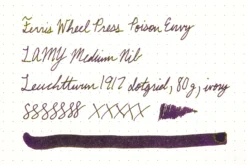 Ferris Wheel Press Poison Envy
LAMY Medium Nib
Leuchtturm 1917 dotgrid, 80g, ivory